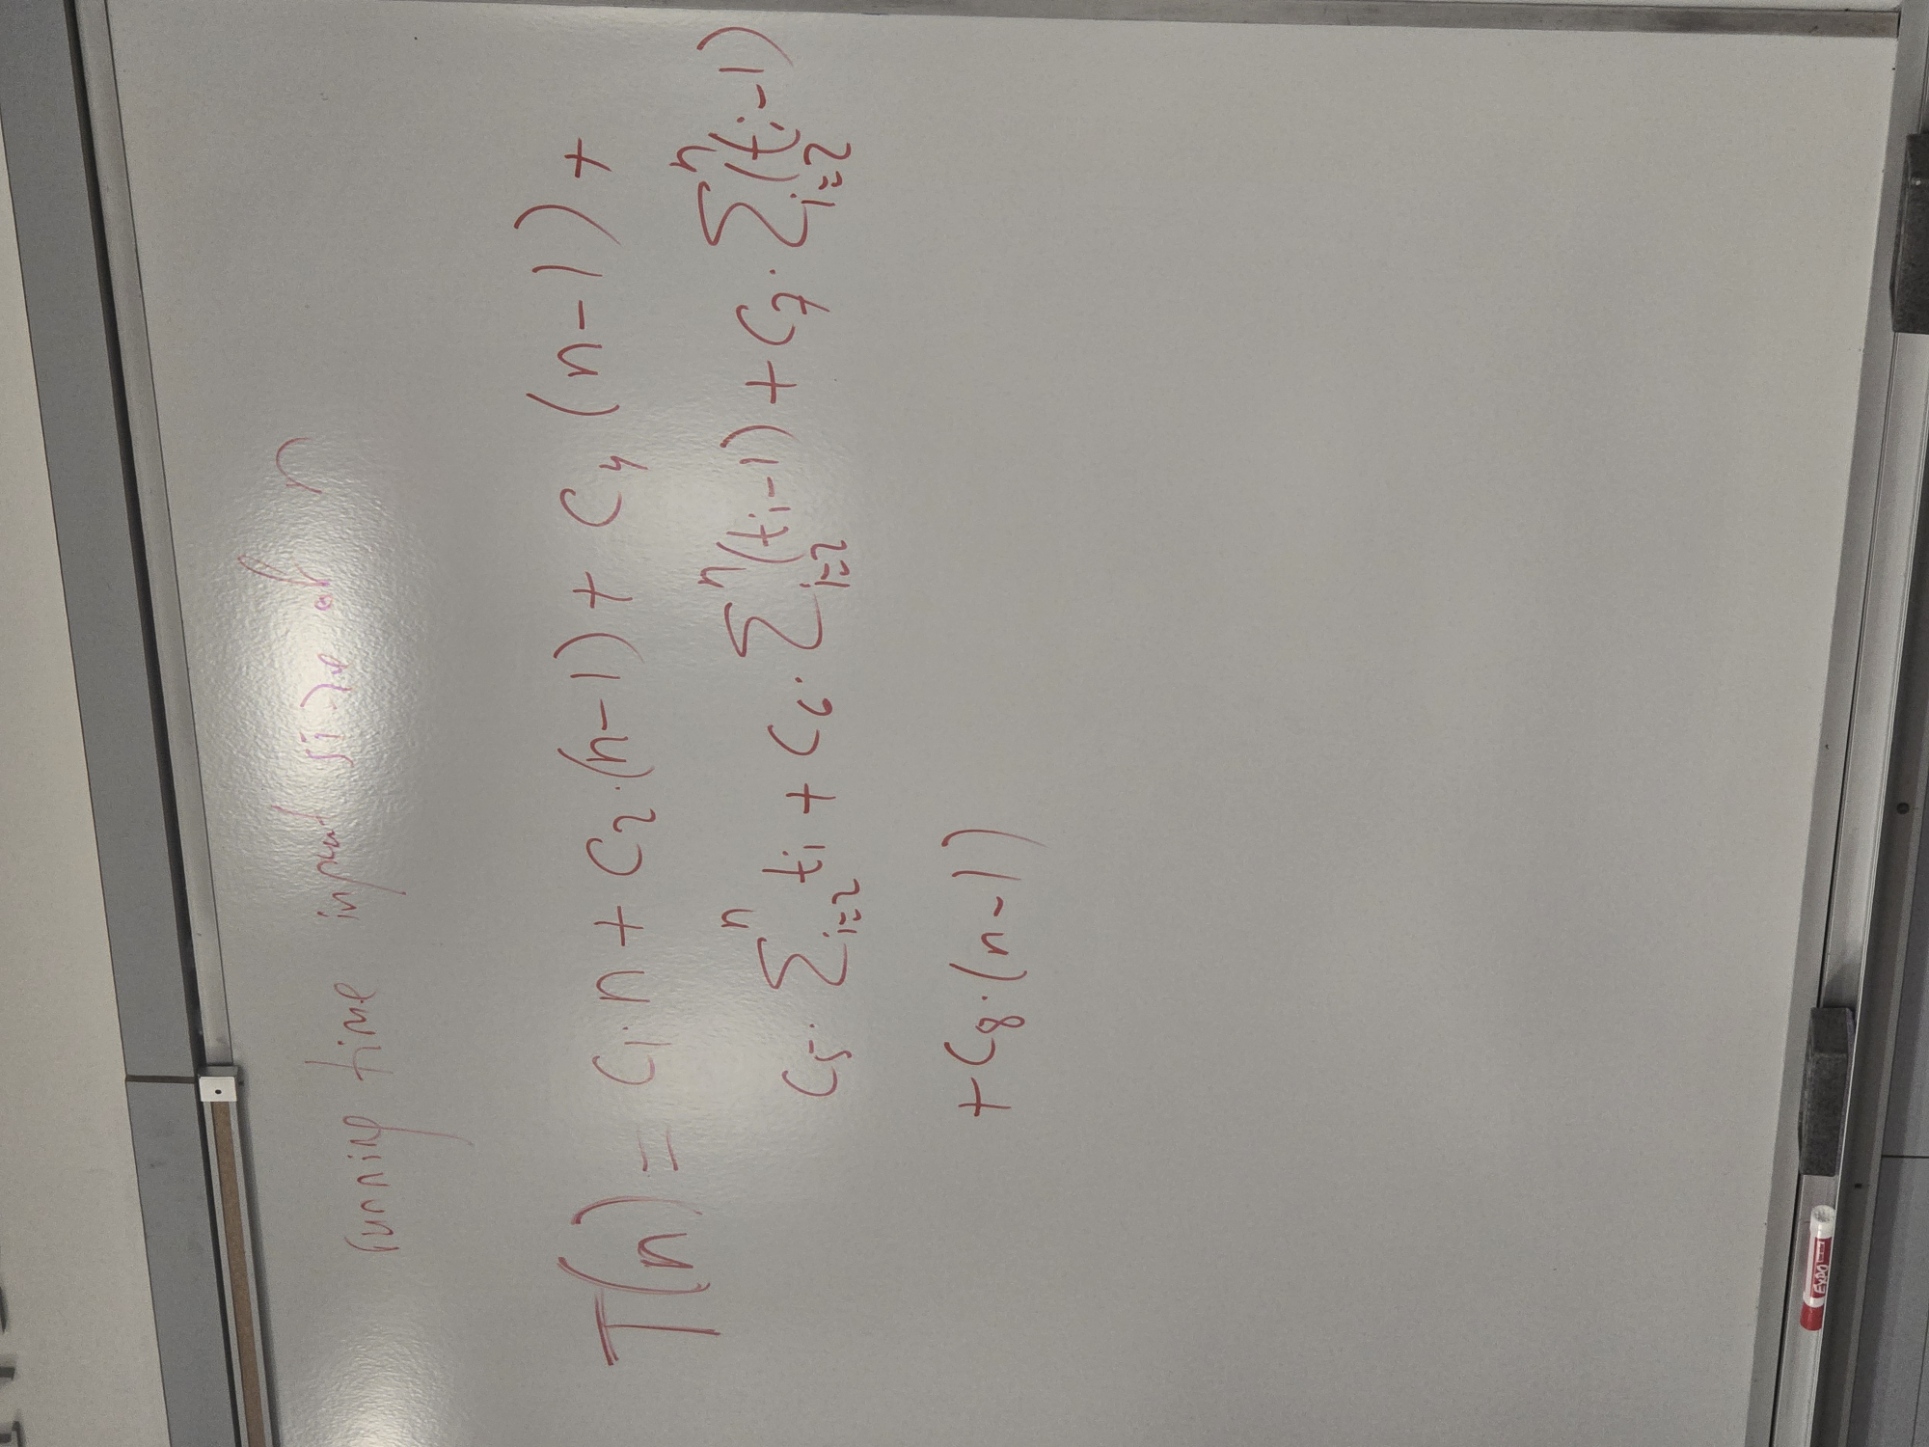 running time input size of n
T(n) = C₁·n + C₂·(n-1) + C₄ (n-1) +
C₅· ∑ᵢ₌₂ⁿ tᵢ + C₆· ∑ᵢ₌₂ⁿ (tᵢ-1) + C₇· ∑ᵢ₌₂ⁿ (tᵢ-1)
+ C₈·(n-1)
EXPO